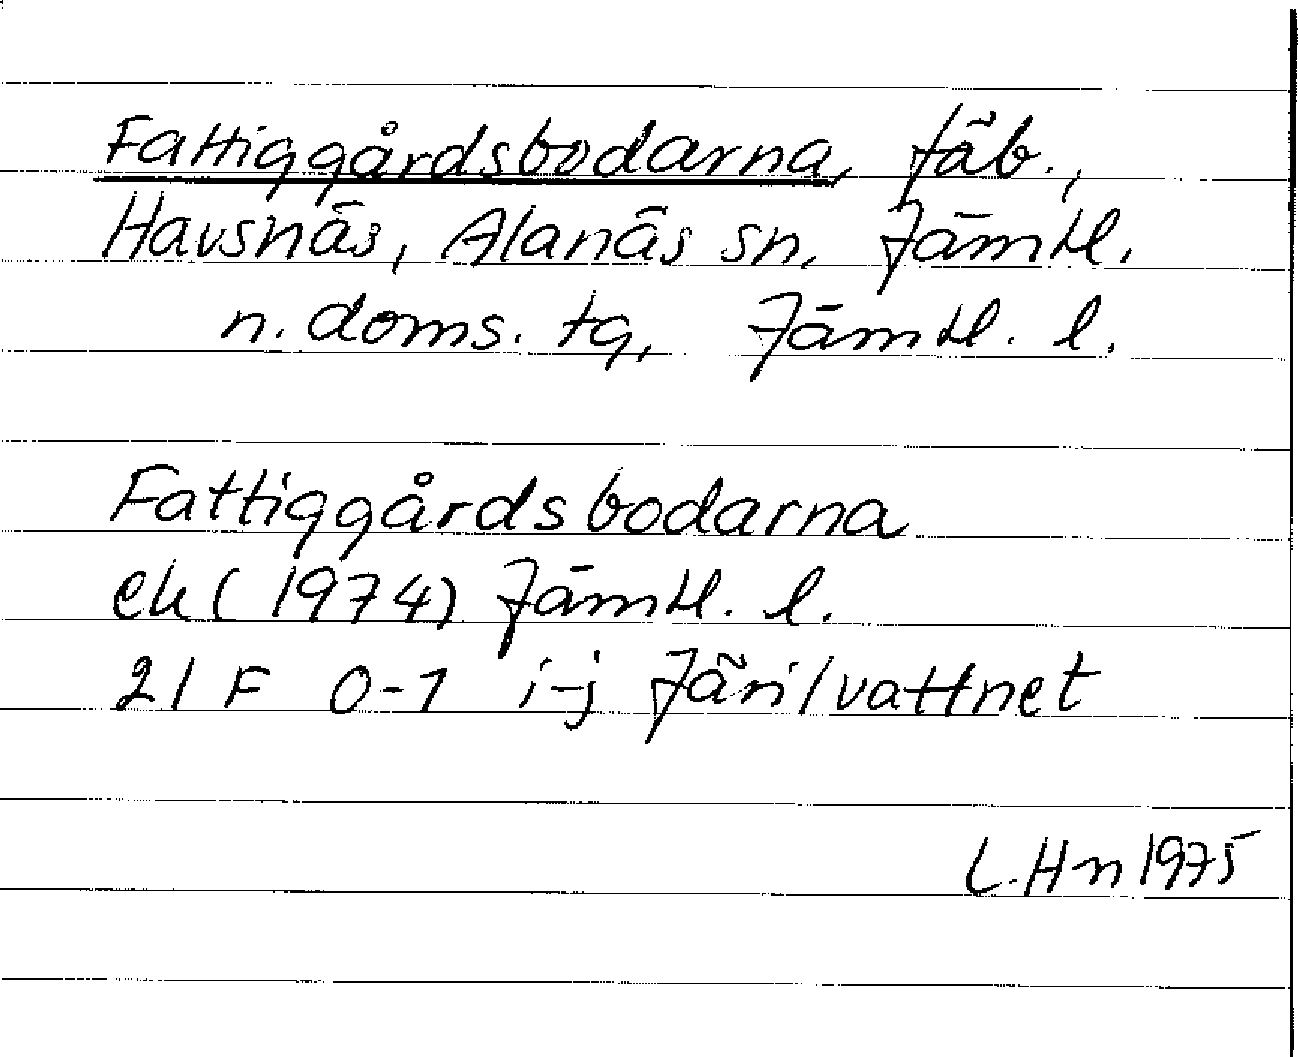 Fattiggårdsbodarna, fäb.,
Havsnäs, Alanäs sn, Jämtl.
n. doms. tg, Jämtl. l.
Fattiggårdsbodarna
ek (1974) Jämtl. l.
21 F 0-1 i-j Järilvattnet
L.Hn 1975